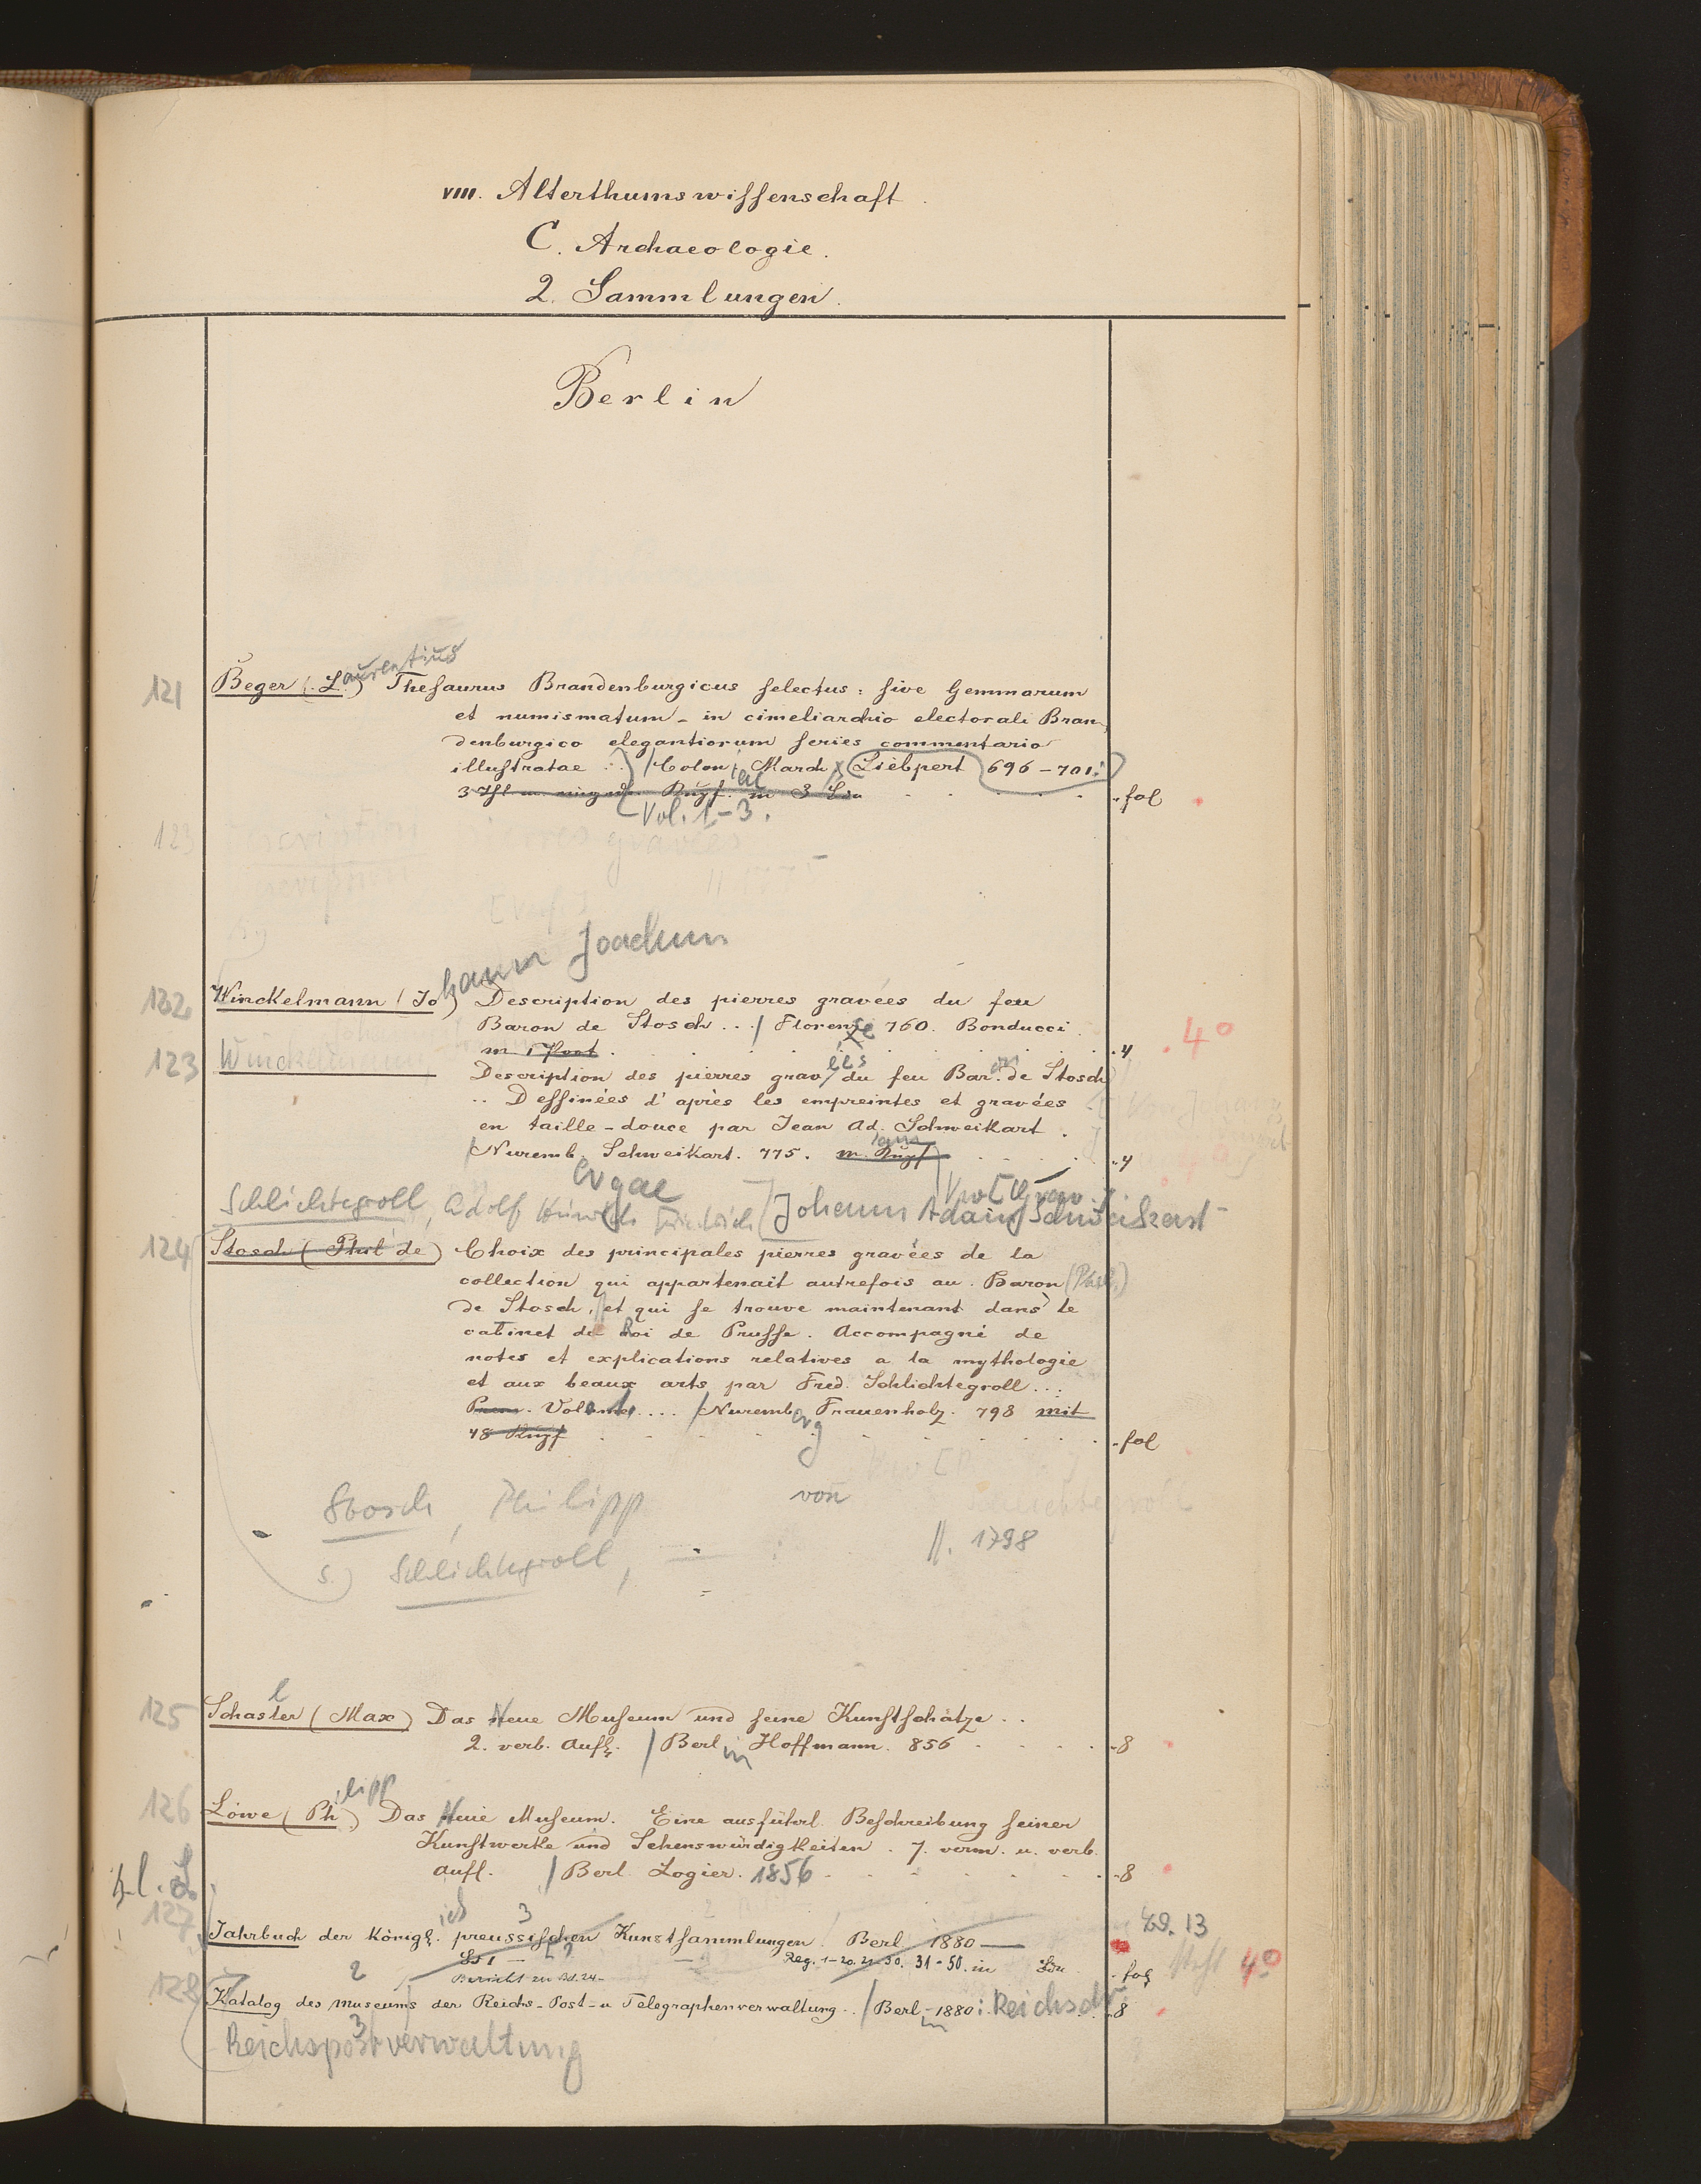 VIII. Alterthumswissenschaft.
C. Archaeologie.
2. Sammlungen.
Berlin
aurentius
121 Beger (L.) Thesaurus Brandenburgicus selectus: sive Gemmarum
et numismatum - in cimeliarchio electorali Bran-
denburgico elegantiorum series commentario
illustratae ..) / Colon. March. (Liebpert 696-701.
3 Thl m. in 3 fol
Vol. 1-3.
123
hann Joachim
122 Winckelmann (Jo) Description des pierres gravées du feu
Baron de Stosch .../ Florence 760. Bonducci.
m 1 Port. 4 4°
123 Winckelmann
Description des pierres gravées du feu Baron de Stosch
.. Dessinées d'après les empreintes et gravées
en taille-douce par Jean Ad. Schweikart.
/ Nuremb. Schweikart. 775. m. Kupf 4
Schlichtegroll, Adolf Heinrich Friedrich [Johann Adam Schweikart
124 Stosch (Phil de) Choix des principales pierres gravées de la
collection qui appartenait autrefois au Baron (Phil.)
de Stosch, et qui se trouve maintenant dans le
cabinet du Roi de Prusse. Accompagné de
notes et explications relatives a la mythologie
et aux beaux arts par Fred. Schlichtegroll ...
Prem. Volume .... / Nuremberg Frauenholz. 798 mit
48 Kupf fol
Stosch, Philipp von
s.) Schlichtegroll, — : //. 1798
l
125 Schasler (Max) Das Neue Museum und seine Kunstschätze ..
2. verb. Aufl. / Berlin Hoffmann. 856 8
ilipp
126 Löwe (Ph.) Das Neue Museum. Eine ausführl. Beschreibung seiner
Kunstwerke und Sehenswürdigkeiten. 7. verm. u. verb.
Aufl. / Berl. Logier. 1856 8
ich 3
127 Jahrbuch der Königl. preussischen Kunstsammlungen. Berl. 1880— Bd. 13
Bd 1 — Reg. 1-20. 21-30. 31-50. in fol 4°
Bericht zu Bd. 24-
2
128 Katalog des Museums der Reichs-Post- u Telegraphenverwaltung .. / Berlin 1880: Reichsdr. 8
3
Reichspostverwaltung